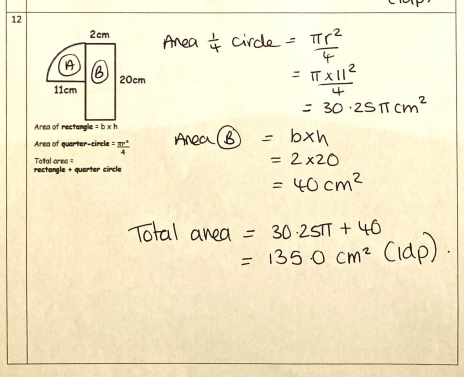 (1dp)
12
2cm
A
B
20cm
11cm
Area of rectangle = b x h
Area of quarter-circle = πr²/4
Total area =
rectangle + quarter circle
Area ¼ circle = πr²/4
= π x 11²/4
= 30.25π cm²
Area B = b x h
= 2 x 20
= 40 cm²
Total area = 30.25π + 40
= 135.0 cm² (1dp).